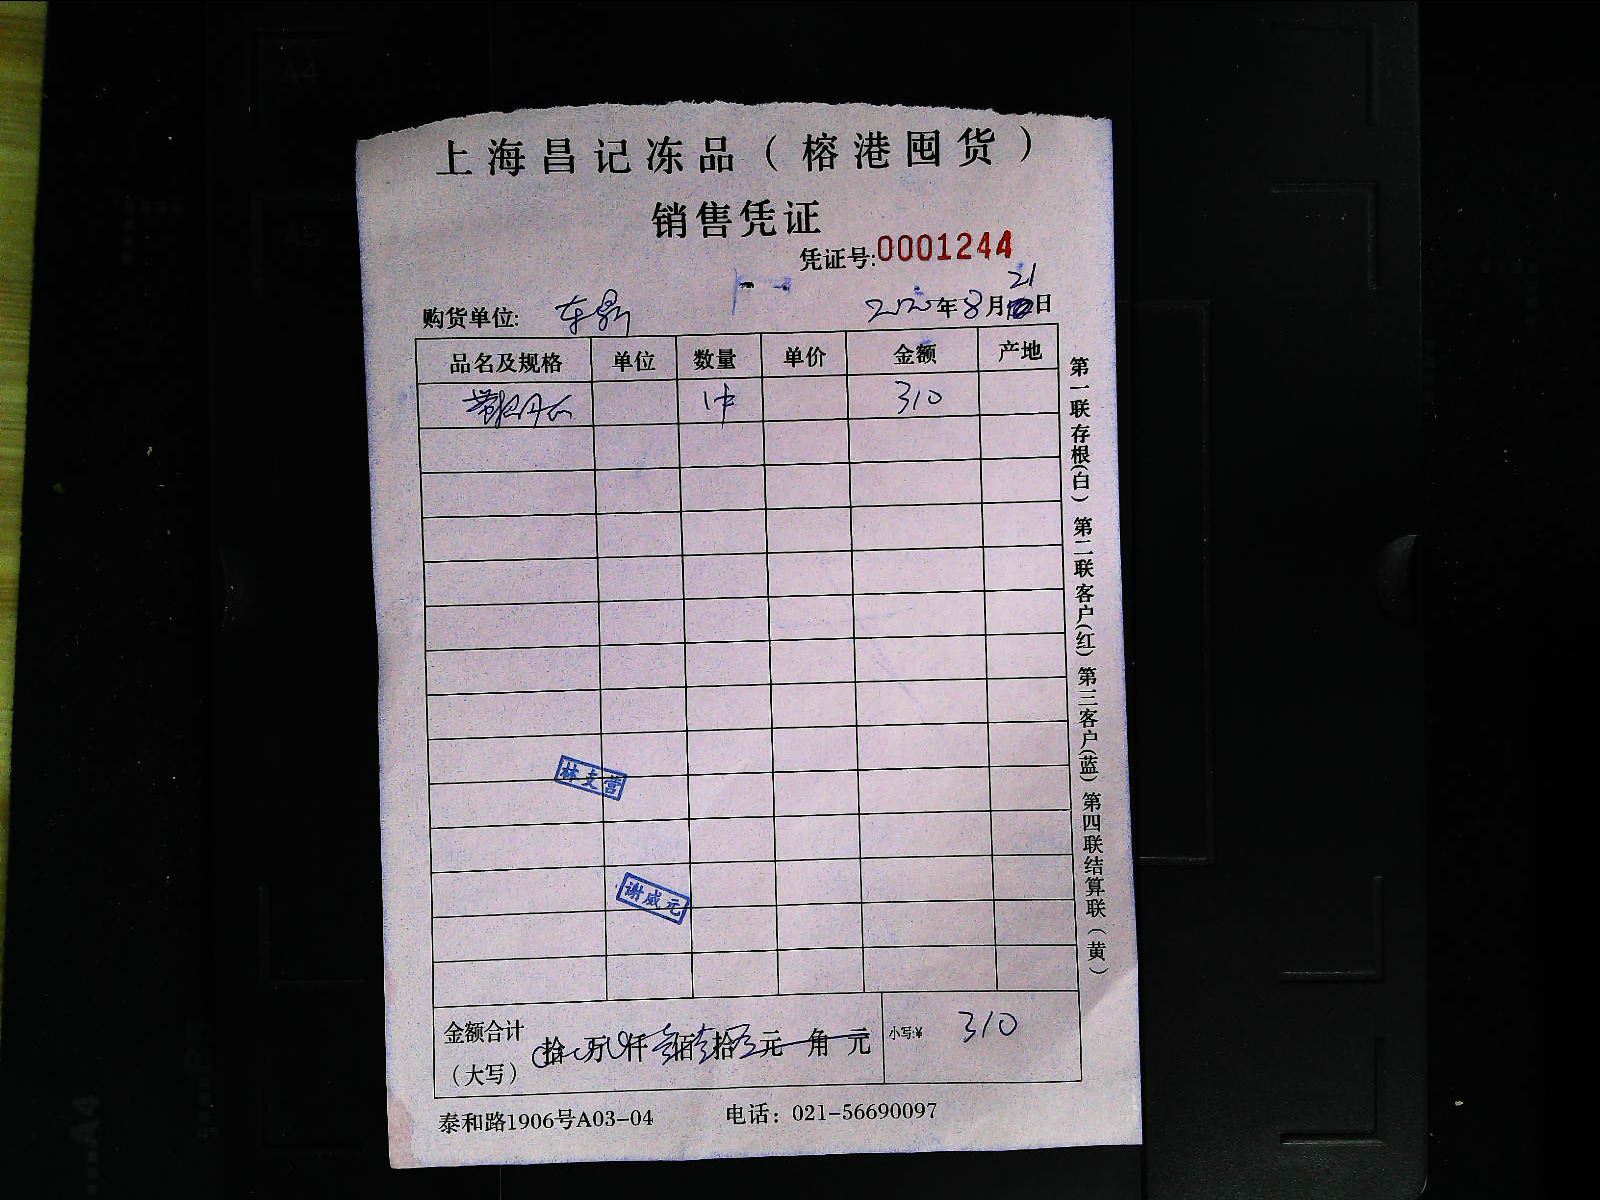 上海昌记冻品（榕港囤货）
销售凭证
凭证号:0001244
购货单位: 东鼎 2020年8月21日
品名及规格 单位 数量 单价 金额 产地
1件 310
林支营
谢威元
金额合计 拾 万 仟 叁佰壹拾 元 角 元 小写:¥ 310
（大写）
泰和路1906号A03-04 电话：021-56690097
第一联存根(白) 第二联客户(红) 第三客户(蓝) 第四联结算联（黄）
A4
A5
A4